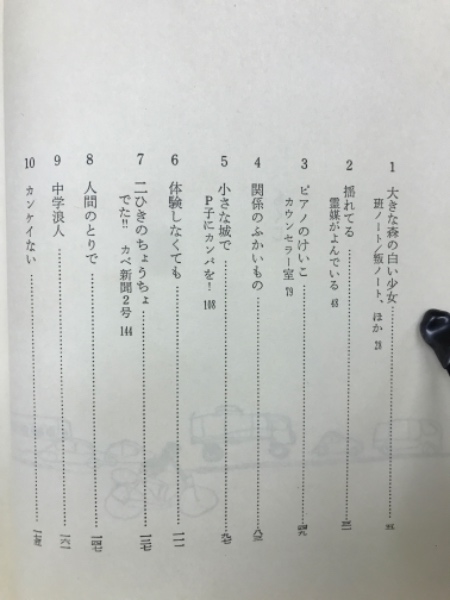 1 大きな森の白い少女……五
班ノート/叛ノート、ほか 28
2 揺れてる……三一
霊媒がよんでいる 48
3 ピアノのけいこ……四九
カウンセラー室 79
4 関係のふかいもの……八三
5 小さな城で……九七
P子にカンパを! 108
6 体験しなくても……一一一
7 二ひきのちょうちょ……一二七
でた!! カベ新聞2号 144
8 人間のとりで……一四七
9 中学浪人……一六一
10 カンケイない……一七五